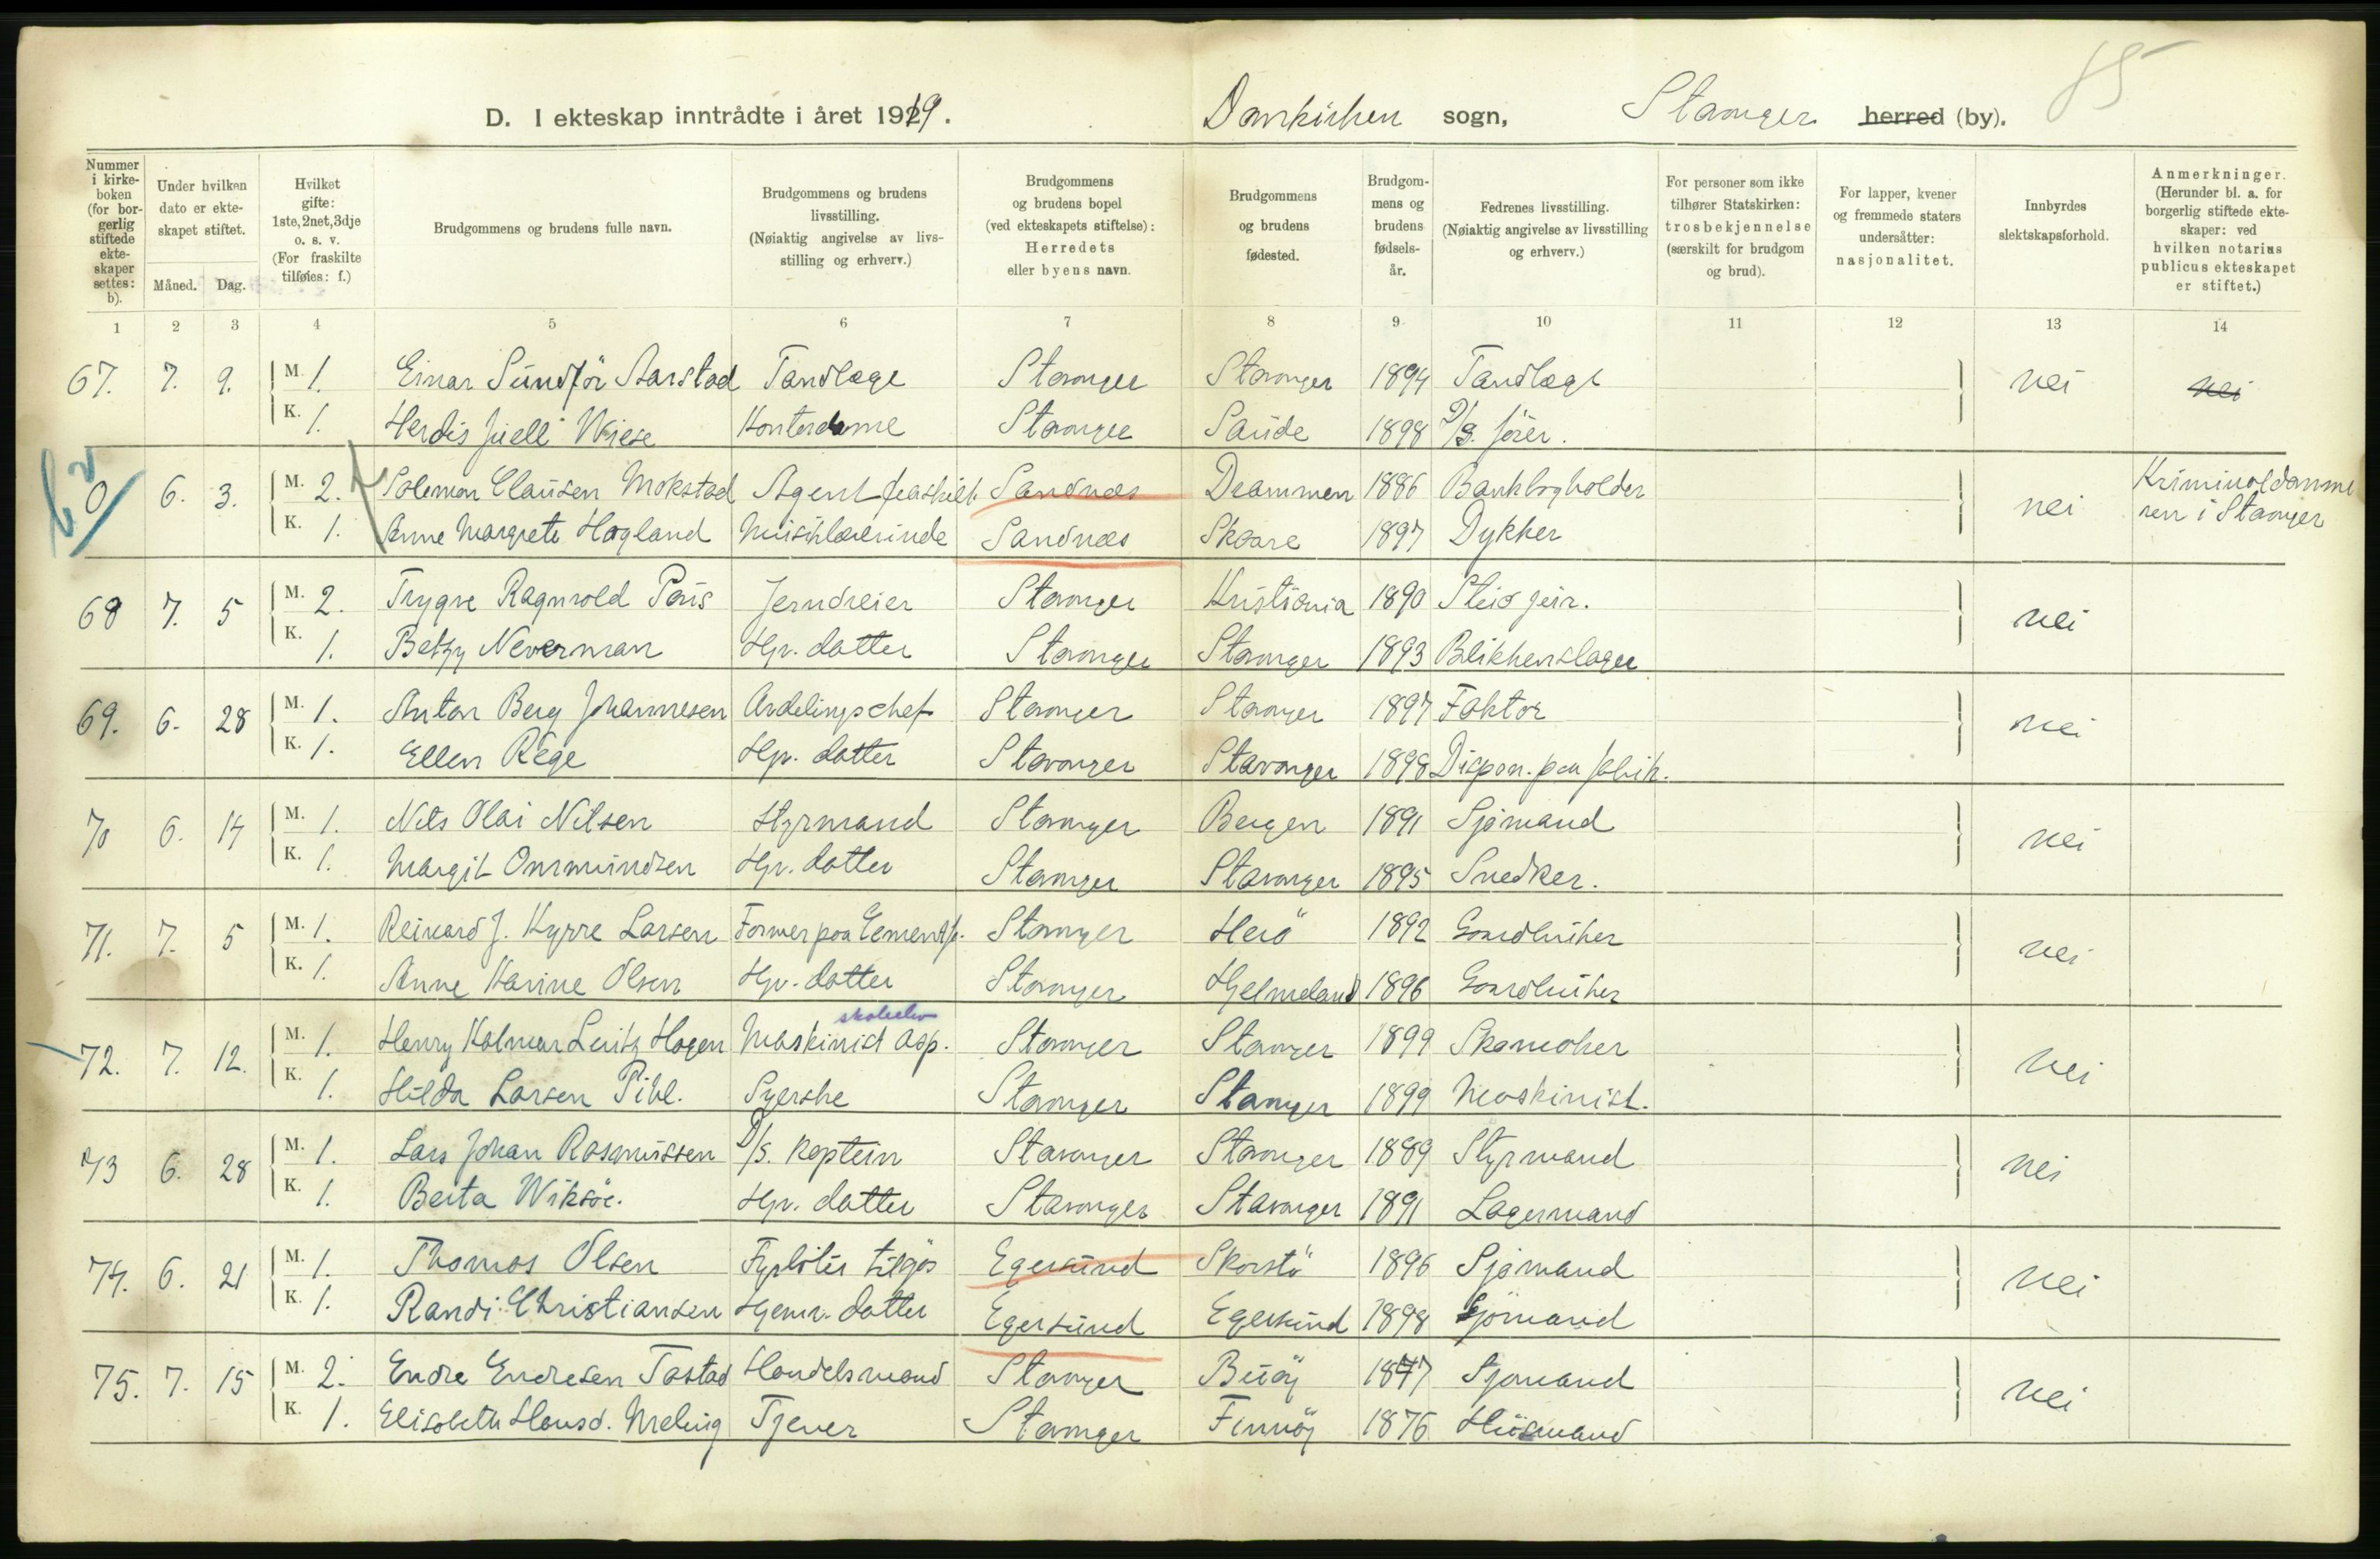 85
D. I ekteskap inntrådte i året 1919. Domkirken sogn, Stavanger herred (by).
Nummer i kirkeboken (for borgerlig stiftede ekteskaper settes: b).
Under hvilken dato er ekteskapet stiftet.
Måned. Dag.
Hvilket gifte: 1ste, 2net, 3dje o. s. v. (For fraskilte tilføies: f.)
Brudgommens og brudens fulle navn.
Brudgommens og brudens livsstilling. (Nøiaktig angivelse av livsstilling og erhverv.)
Brudgommens og brudens bopel (ved ekteskapets stiftelse): Herredets eller byens navn.
Brudgommens og brudens fødested.
Brudgommens og brudens fødselsår.
Fedrenes livsstilling. (Nøiaktig angivelse av livsstilling og erhverv.)
For personer som ikke tilhører Statskirken: trosbekjennelse (særskilt for brudgom og brud).
For lapper, kvener og fremmede staters undersåtter: nasjonalitet.
Innbyrdes slektskapsforhold.
Anmerkninger. (Herunder bl. a. for borgerlig stiftede ekteskaper: ved hvilken notarius publicus ekteskapet er stiftet.)
1 2 3 4 5 6 7 8 9 10 11 12 13 14
67. 7. 9. M. 1. Einar Sundför Aarstad Tandlæge Stavanger Stavanger 1894 Tandlæge nei nei
K. 1. Herdis Juell Wiese Kontordame Stavanger Saude 1898 D/S. förer.
6. 3. M. 2. Solemon Clausen Mokstad Agent fraskilt Sandnæs Drammen 1886 Bankbogholder nei Kriminaldomme
K. 1. Anne Margrete Hagland Musiklærerinde Sandnæs Skaare 1897 Dykker ren i Stavanger
68 7. 5 M. 2. Trygve Ragnvald Jerndreier Stavanger Kristiania 1890 nei
K. 1. Betzy Neverman Hjv. datter Stavanger Stavanger 1893 Blikkenslager
69. 6. 28 M. 1. Anton Berg Johannesen Avdelingschef Stavanger Stavanger 1897 Faktor nei
K. 1. Ellen Rege Hjv. datter Stavanger Stavanger 1898 Dispon. paa fabrik.
70 6. 14 M. 1. Nils Olai Nilsen Styrmand Stavanger Bergen 1891 Sjömand nei
K. 1. Margit Ommundsen Hjv. datter Stavanger Stavanger 1895 Snedker.
71. 7. 5 M. 1. Reinard J. Kyrre Larsen Former paa Cementf. Stavanger Herö 1892 Gaardbruker nei
K. 1. Anne Karine Olsen Hjv. datter Stavanger Hjelmeland 1896 Gaardbruker
skoleelev
72. 7. 12. M. 1. Henry Halmar Lentz Hagen Maskinist Asp. Stavanger Stavanger 1899 Skomaker nei
K. 1. Hilda Larsen Pihl. Syerske Stavanger Stavanger 1899 Maskinist.
73 6. 28 M. 1. Lars Johan Rasmussen D/S. kaptein Stavanger Stavanger 1889 Styrmand nei
K. 1. Berta Wiksöe. Hjv. datter Stavanger Stavanger 1891 Lagermand
74. 6. 21 M. 1. Thomas Olsen Fyrböter tilsjös Egersund 1896 Sjömand nei
K. 1. Randi Christiansen Hjemv. datter Egersund Egersund 1898 Sjömand
75. 7. 15 M. 2. Endre Endresen Tastad Handelsmand Stavanger Buöy 1877 Sjömand nei
K. 1. Elisabeth Hansd. Meling Tjener Stavanger Finnöy 1876 Husmand